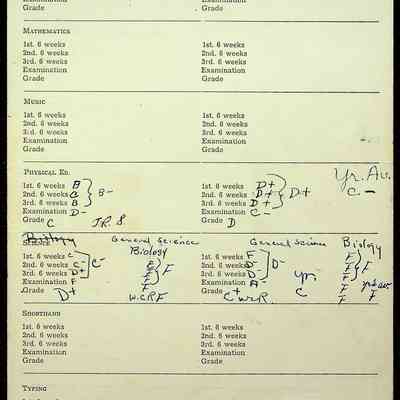 Grade Grade
MATHEMATICS
1st. 6 weeks 1st. 6 weeks
2nd. 6 weeks 2nd. 6 weeks
3rd. 6 weeks 3rd. 6 weeks
Examination Examination
Grade Grade
MUSIC
1st. 6 weeks 1st. 6 weeks
2nd. 6 weeks 2nd. 6 weeks
3rd. 6 weeks 3rd. 6 weeks
Examination Examination
Grade Grade
PHYSICAL ED. Yr. Av.
1st. 6 weeks B 1st. 6 weeks D+ C-
2nd. 6 weeks C B- 2nd. 6 weeks D+ D+
3rd. 6 weeks B 3rd. 6 weeks D+
Examination D- Examination C-
Grade C J.R.S. Grade D
Biology General Science General Science Biology
Biology
1st. 6 weeks C- 1st. 6 weeks F F
2nd. 6 weeks C- C- E F 2nd. 6 weeks D- D- F F
3rd. 6 weeks D+ 3rd. 6 weeks D- yr. F
Examination F F Examination A- F
Grade D+ W.C.R.F Grade + C C F F
SHORTHAND
1st. 6 weeks 1st. 6 weeks
2nd. 6 weeks 2nd. 6 weeks
3rd. 6 weeks 3rd. 6 weeks
Examination Examination
Grade Grade
TYPING